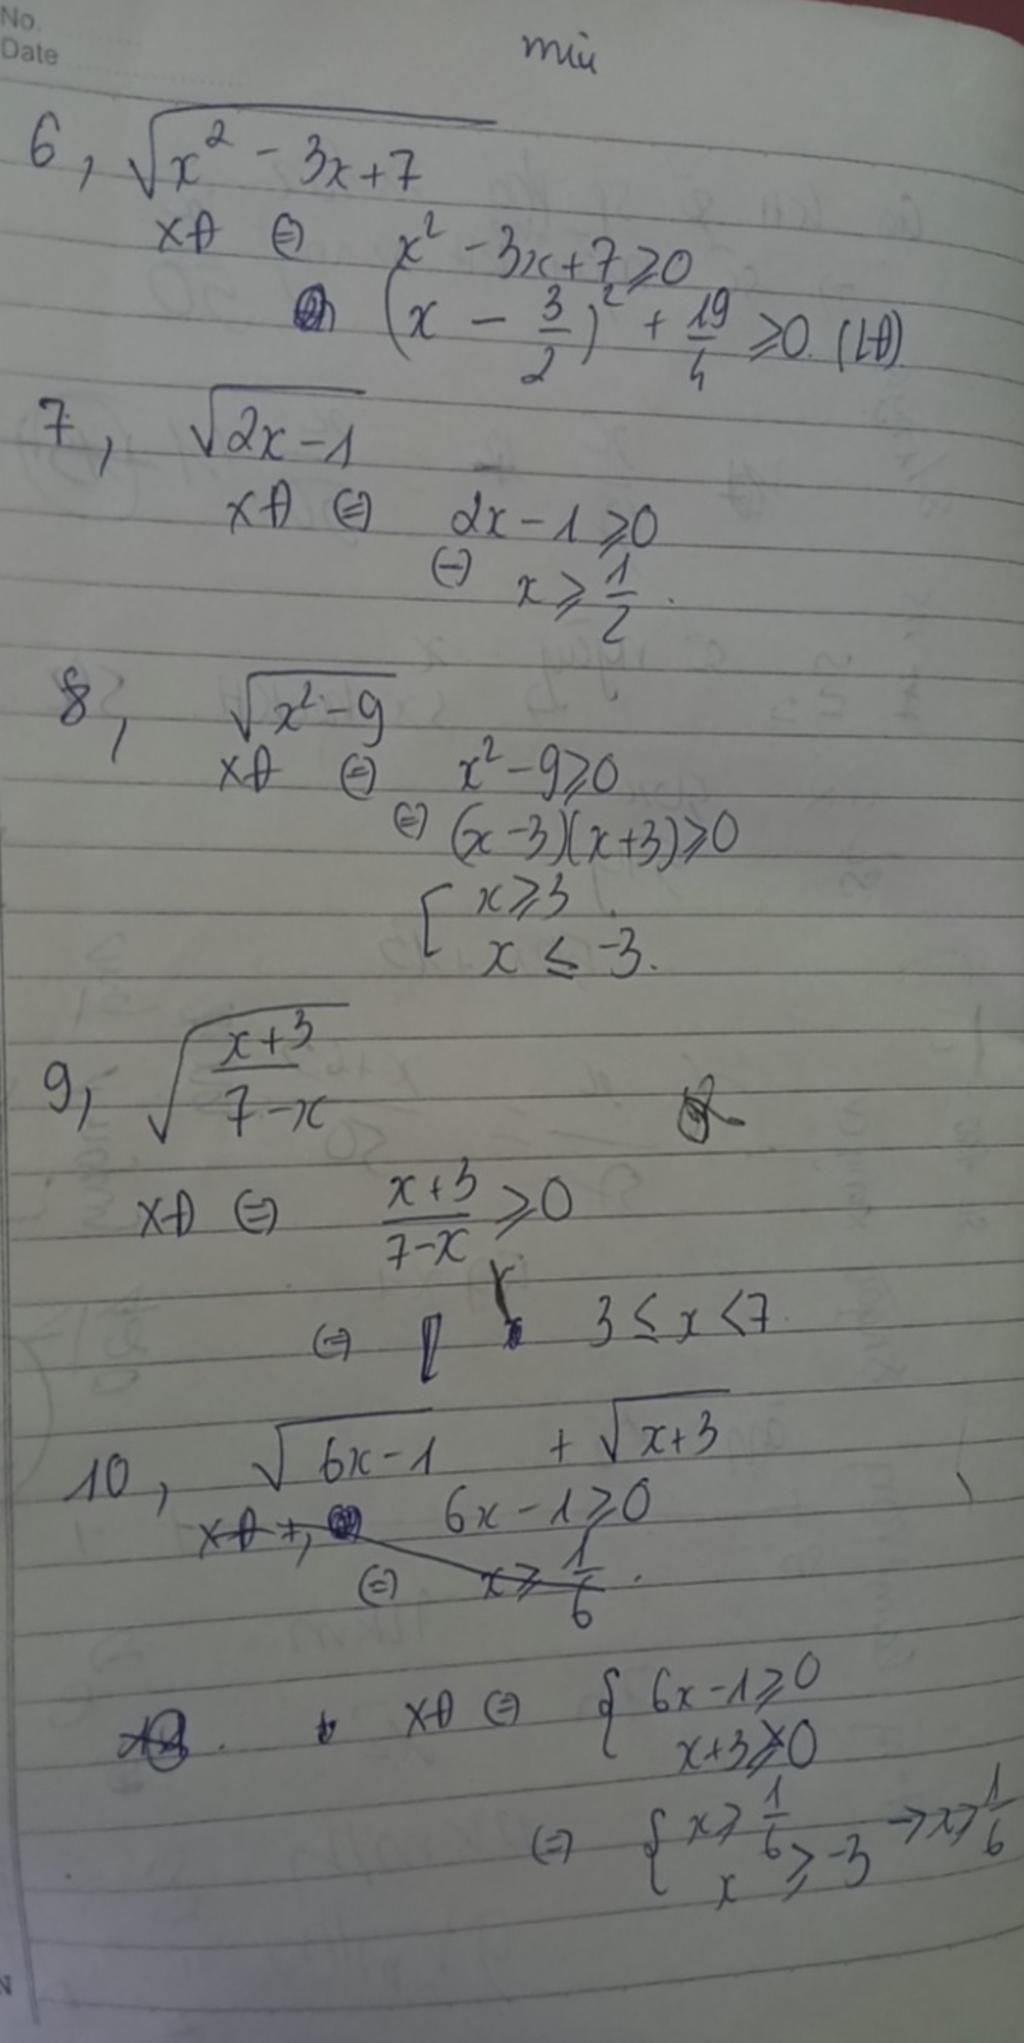 No.
Date
miu
6, √(x² - 3x + 7)
XĐ ⇔ x² - 3x + 7 ≥ 0
(x - 3/2)² + 19/4 ≥ 0. (LĐ)
7, √(2x - 1)
XĐ ⇔ 2x - 1 ≥ 0
⇔ x ≥ 1/2.
8, √(x² - 9)
XĐ ⇔ x² - 9 ≥ 0
⇔ (x - 3)(x + 3) ≥ 0
[ x ≥ 3
x ≤ -3.
9, √((x + 3)/(7 - x))
XĐ ⇔ (x + 3)/(7 - x) ≥ 0
⇔ 3 ≤ x < 7.
10, √(6x - 1) + √(x + 3)
XĐ +, 6x - 1 ≥ 0
⇔ x ≥ 1/6.
XĐ ⇔ { 6x - 1 ≥ 0
x + 3 ≥ 0
⇔ { x ≥ 1/6 → x ≥ 1/6
x ≥ -3